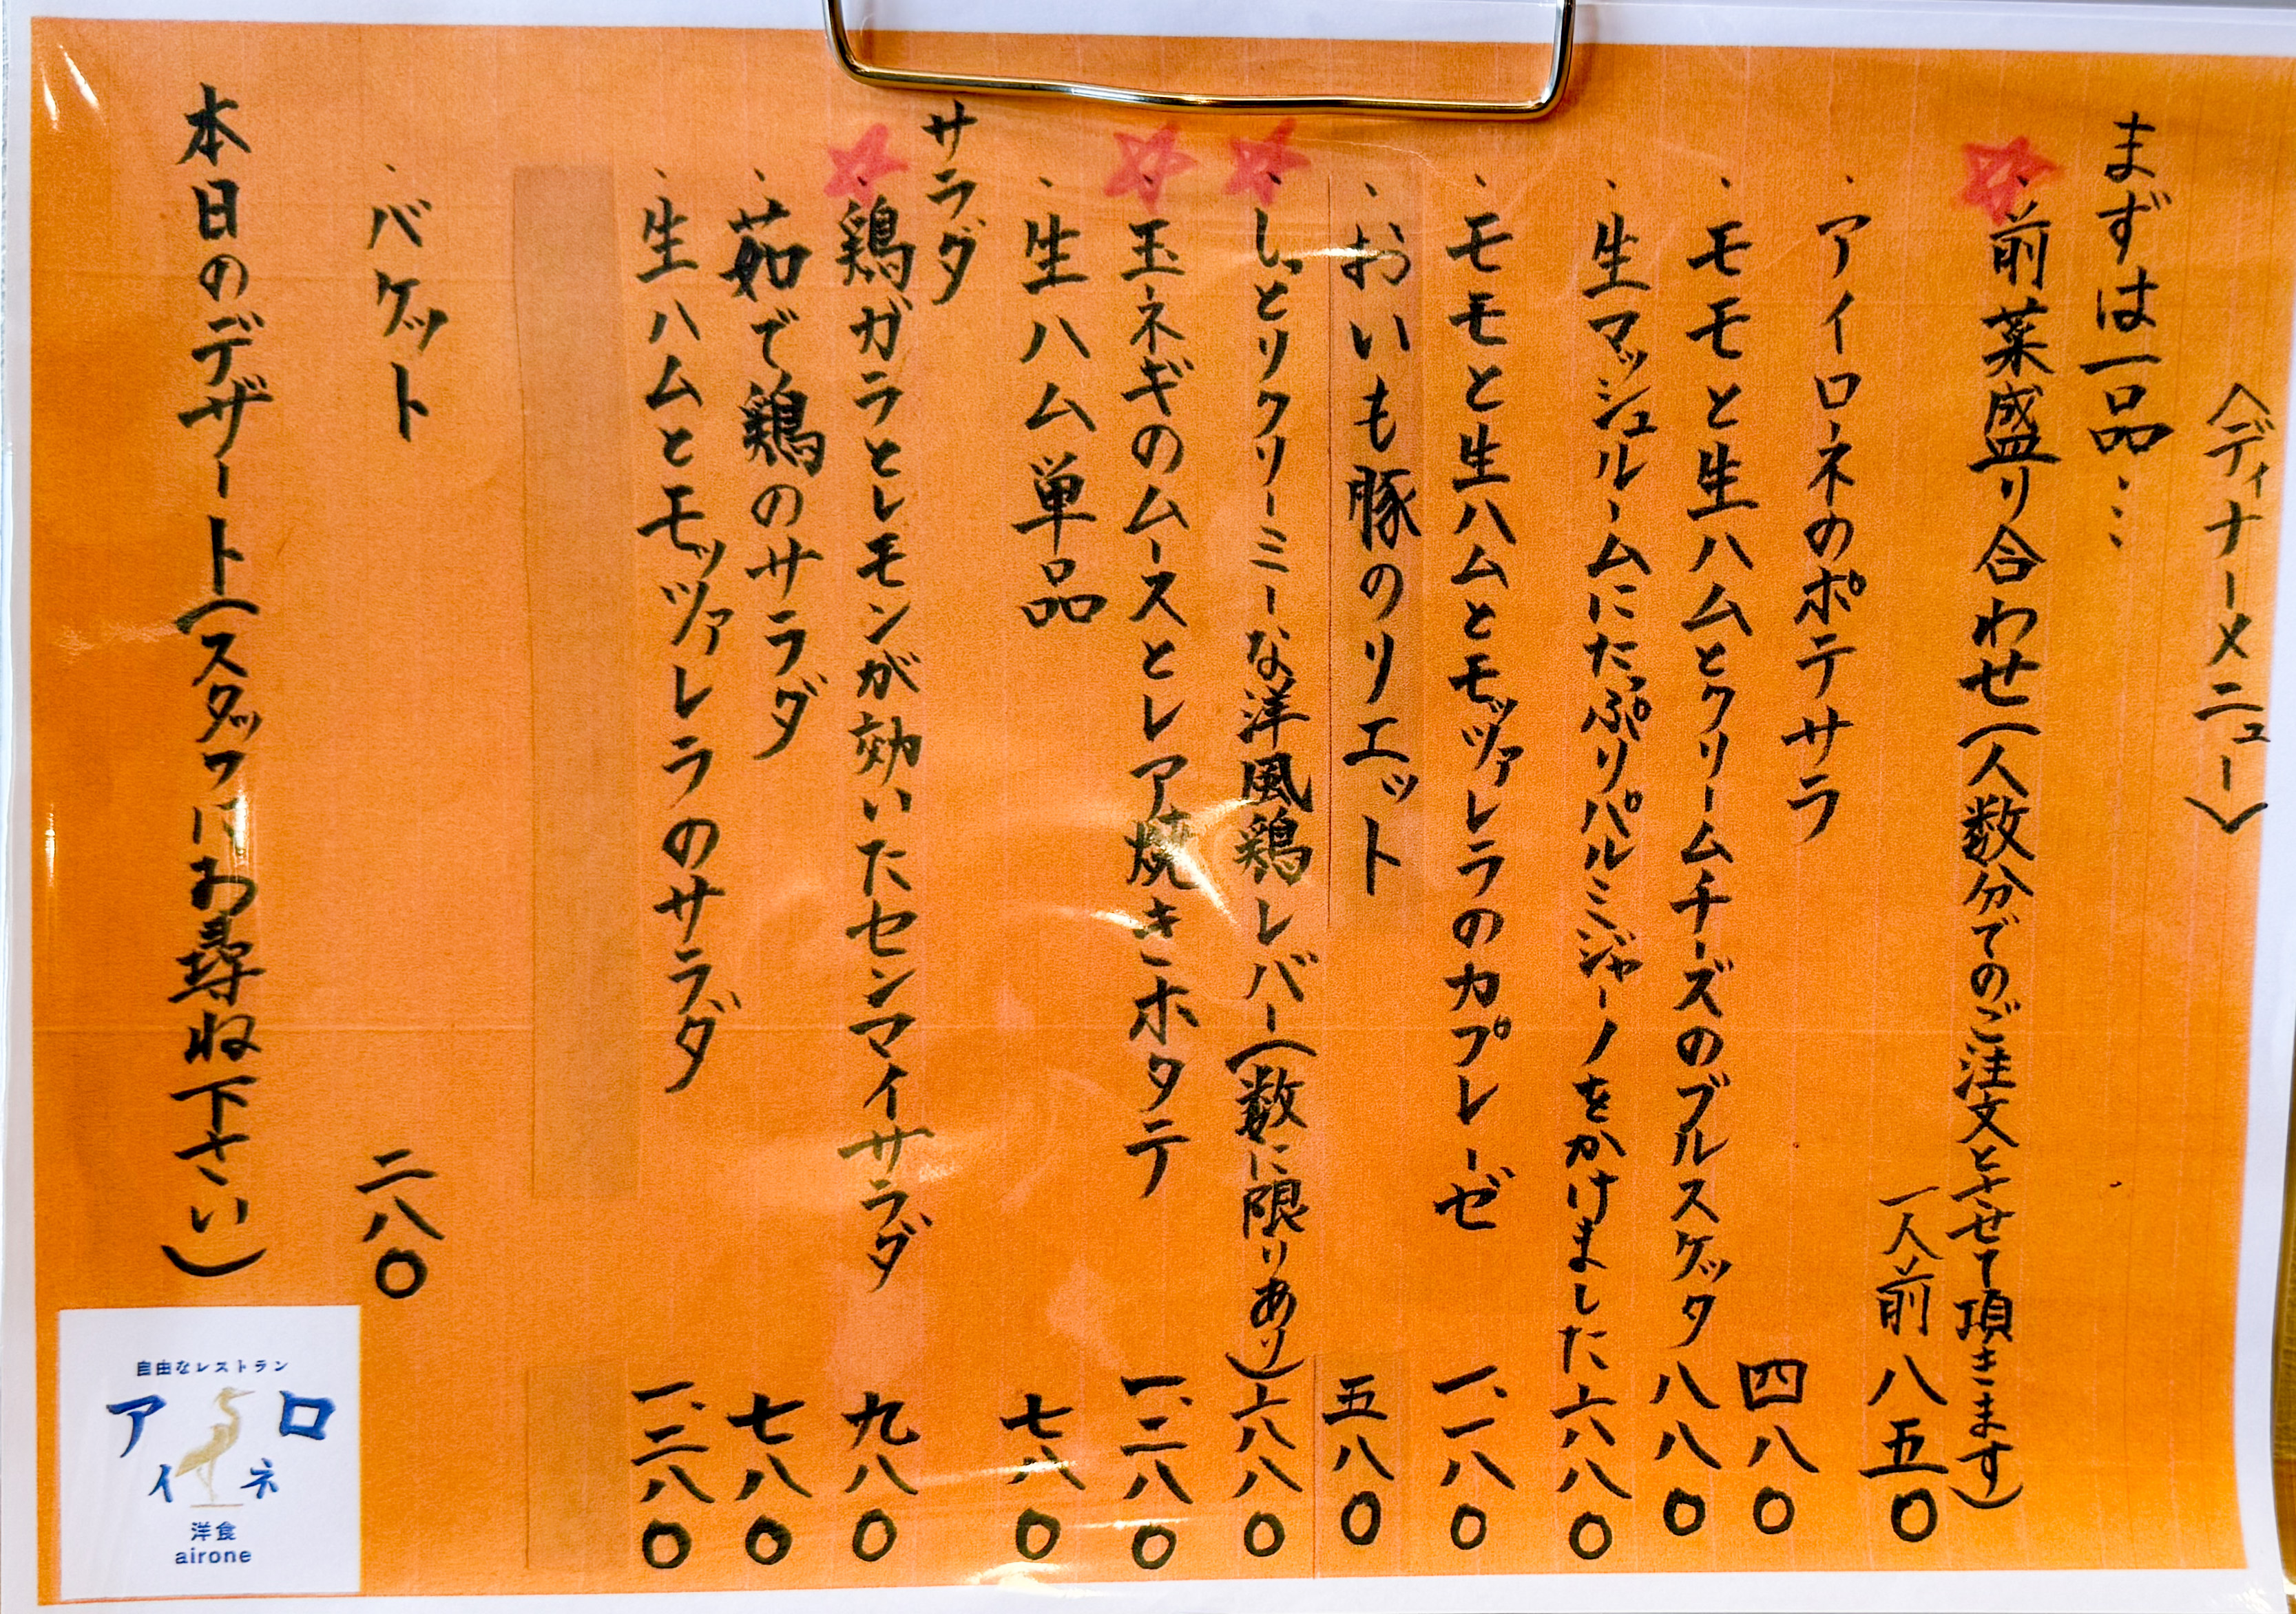 〈ディナーメニュー〉
まずは一品……
、前菜盛り合わせ(人数分でのご注文とさせて頂きます)
一人前 八五〇
、アイロネのポテサラ 四八〇
、モモと生ハムとクリームチーズのブルスケッタ 八八〇
、生マッシュルームにたっぷりパルミジャーノをかけました 六八〇
、モモと生ハムとモッツァレラのカプレーゼ 一、一八〇
、おいも豚のリエット 五八〇
、しっとりクリーミーな洋風鶏レバー(数に限りあり) 六八〇
、玉ネギのムースとレア焼きホタテ 一、二八〇
、生ハム単品 七八〇
サラダ
、鶏ガラとレモンが効いたセンマイサラダ 九八〇
、茹で鶏のサラダ 七八〇
、生ハムとモッツァレラのサラダ 一、二八〇
、バケット 二八〇
本日のデザート(スタッフにお尋ね下さい)
自由なレストラン
アイロネ
洋食
airone